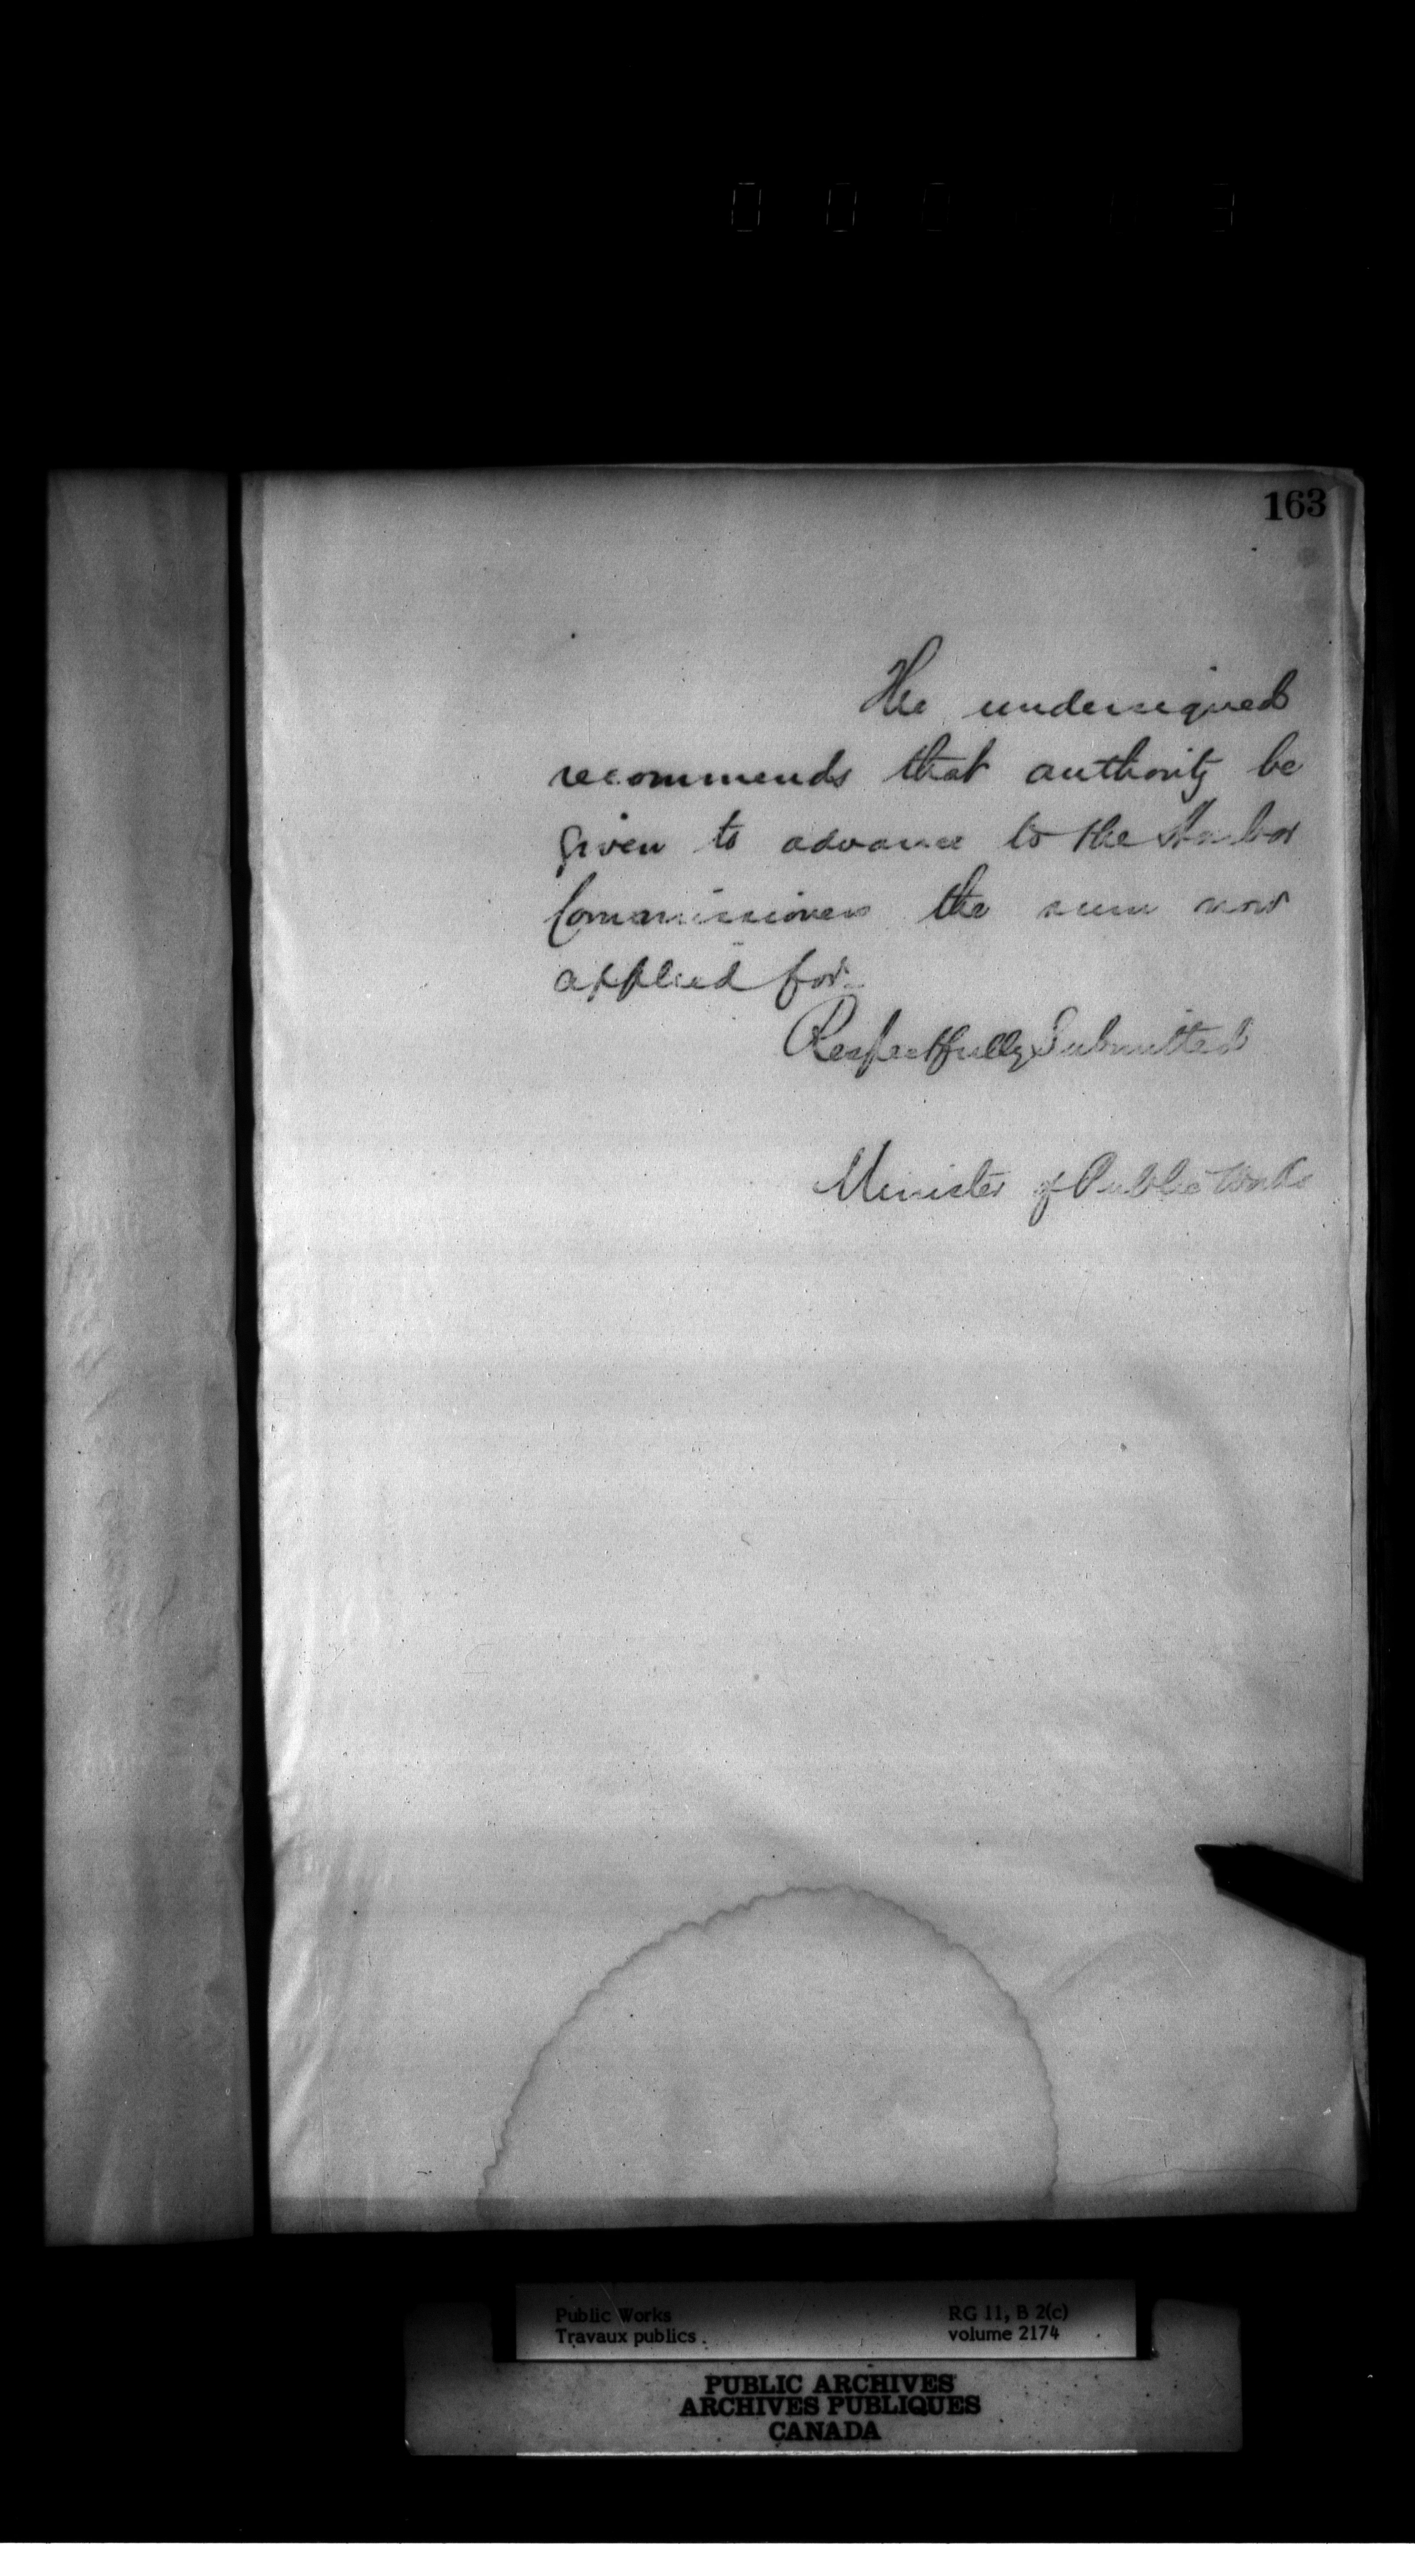 163
The undersigned
recommends that authority be
given to advance to the Harbor
Commissioners the sum now
applied for.
Respectfully Submitted
Minister of Public Works
Public Works
Travaux publics
RG 11, B 2(c)
volume 2174
PUBLIC ARCHIVES
ARCHIVES PUBLIQUES
CANADA